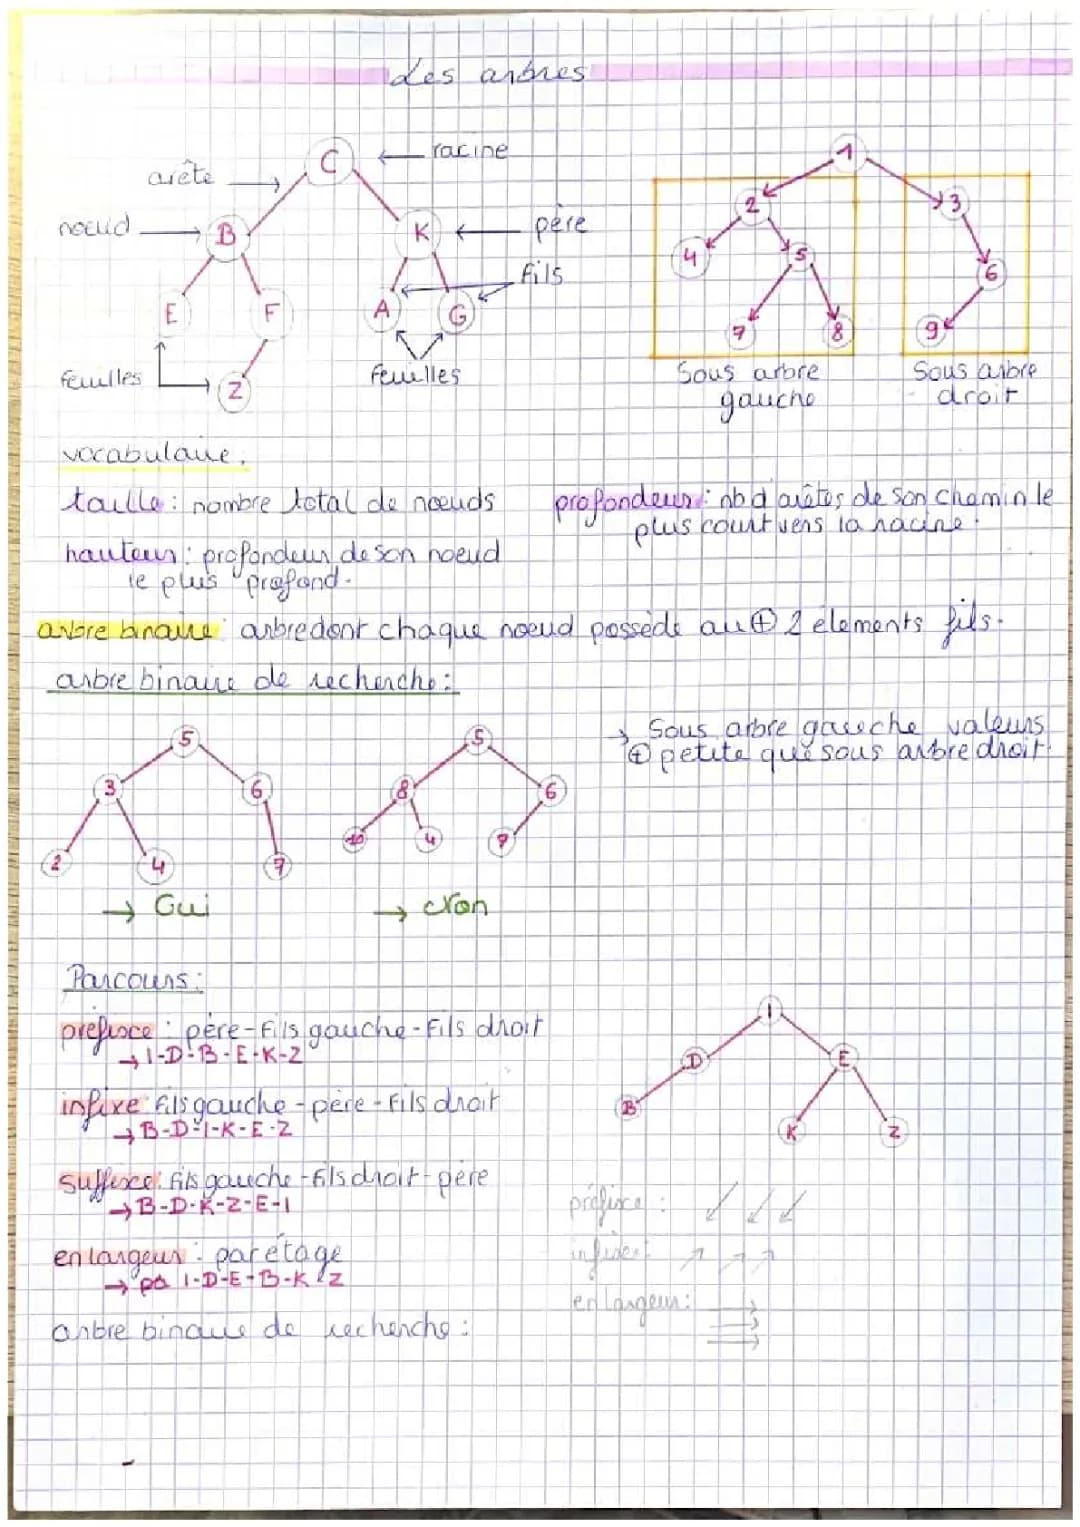 Les arbres
C
racine
arête
noeud
B
K
père
fils
E
F
A
G
feuilles
Z
feuilles
1
2
3
4
5
6
7
8
9
Sous arbre
gauche
Sous arbre
droit
vocabulaire:
taille: nombre total de nœuds
profondeur: nb d'arêtes de son chemin le
plus court vers la racine.
hauteur: profondeur de son noeud
le plus profond.
arbre binaire: arbre dont chaque noeud possède au ⊕ 2 élements fils.
arbre binaire de recherche:
5
3
6
2
4
7
→ Oui
5
8
6
10
4
9
→ Non
→ Sous arbre gauche valeurs
⊕ petite que sous arbre droit.
Parcours:
préfixe: père-fils gauche-fils droit
→ I-D-B-E-K-Z
infixe: fils gauche-père-fils droit
→ B-D-I-K-E-Z
suffixe: fils gauche-fils droit-père
→ B-D-K-Z-E-I
en largeur: par étage
→ I-D-E-B-K-Z
I
D
E
B
K
Z
préfixe: ↙ ↙ ↙
infixe: ↗ ↗ ↗
en largeur: → → →
arbre binaire de recherche: